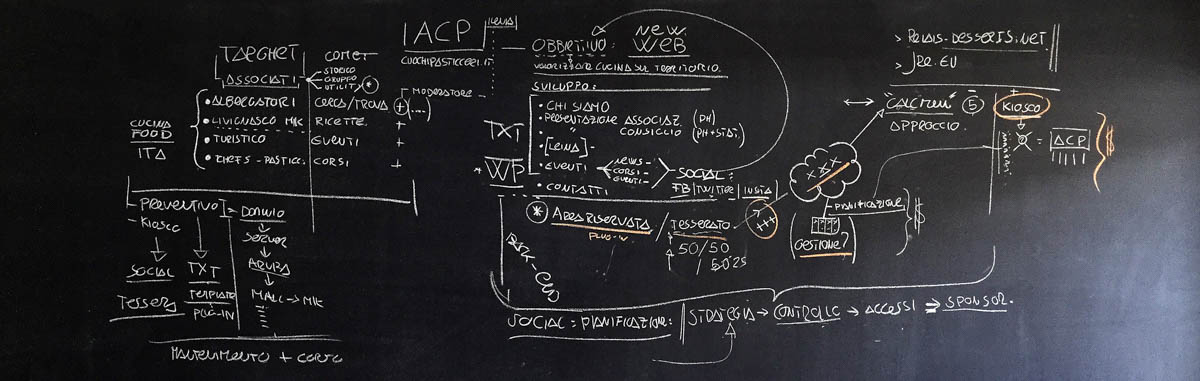 IACP
CUOCHIPASTICCERI.IT
TARGHET
COME?
ASSOCIATI
STORICO
GRUPPO
UTILIT
*
MODERATORE
• ALBERGATORI
CERCA/TROVA + (....)
• LIVIGNASCO
RICETTE +
• TURISTICO
EVENTI +
• CHEFS - PASTICC.
CORSI +
CUCINA
FOOD
ITA
PREVENTIVO
KIOSCO
SOCIAL
TESSERA
TXT
TEMPLATE
PLUG-IN
DOMINIO
SERVER
ARUBA
MAIL → MK
MANTENIMENTO + COSTO
OBBIETTIVO:
NEW
WEB
VALORIZZARE CUCINA SUL TERRITORIO.
SVILUPPO:
TXT
WP
• CHI SIAMO
• PRESENTAZIONE ASSOCIAZ. (PH)
" CONSIGLIO (PH+STAT.)
• EVENTI
NEWS -
CORSI -
EVENTI -
SOCIAL:
FB | TWITTER | INSTA
• CONTATTI
* AREA RISERVATA / TESSERATO
PLUG-IN
50/50
50.25
+++
BACK-END
> RELAIS-DESSERTS.NET.
> JRE.EU
↔ "CALCMENU" ⑤
APPROCCIO.
- +
KIOSCO
= ACP
$
XXX
PIANIFICAZIONE
GESTIONE?
$
SOCIAL = PIANIFICAZIONE: STRATEGIA → CONTROLLO → ACCESSI ⇒ SPONSOR.